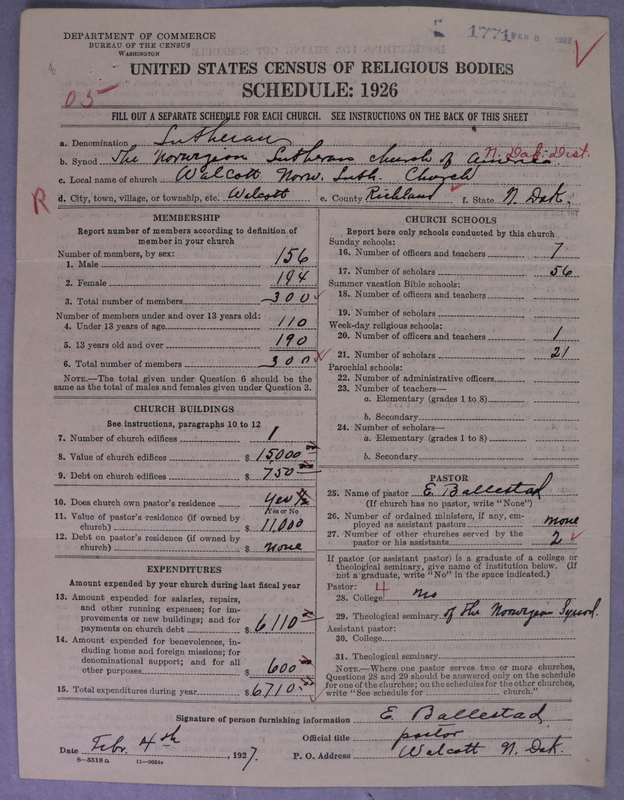 1771 FEB 8 1927
DEPARTMENT OF COMMERCE
BUREAU OF THE CENSUS
WASHINGTON
UNITED STATES CENSUS OF RELIGIOUS BODIES
SCHEDULE: 1926
05
FILL OUT A SEPARATE SCHEDULE FOR EACH CHURCH. SEE INSTRUCTIONS ON THE BACK OF THIS SHEET
a. Denomination Lutheran
b. Synod The Norwegian Lutheran church of America. N. Dak. Dist.
c. Local name of church Walcott Norw. Luth. Church
R
d. City, town, village, or township, etc. Walcott e. County Richland f. State N. Dak.
MEMBERSHIP
Report number of members according to definition of
member in your church
Number of members, by sex:
1. Male 156
2. Female 144
3. Total number of members 300
Number of members under and over 13 years old:
4. Under 13 years of age 110
5. 13 years old and over 190
6. Total number of members 300
NOTE.—The total given under Question 6 should be the
same as the total of males and females given under Question 3.
CHURCH BUILDINGS
See instructions, paragraphs 10 to 12
7. Number of church edifices 1
8. Value of church edifices $ 15000
9. Debt on church edifices $ 750
10. Does church own pastor's residence Yes
Yes or No
11. Value of pastor's residence (if owned by
church) $ 11,000
12. Debt on pastor's residence (if owned by
church) $ none
EXPENDITURES
Amount expended by your church during last fiscal year
13. Amount expended for salaries, repairs,
and other running expenses; for im-
provements or new buildings; and for
payments on church debt $ 6110
14. Amount expended for benevolences, in-
cluding home and foreign missions; for
denominational support; and for all
other purposes $ 600
15. Total expenditures during year $ 6710
CHURCH SCHOOLS
Report here only schools conducted by this church
Sunday schools:
16. Number of officers and teachers 7
17. Number of scholars 56
Summer vacation Bible schools:
18. Number of officers and teachers
19. Number of scholars
Week-day religious schools:
20. Number of officers and teachers 1
21. Number of scholars 21
Parochial schools:
22. Number of administrative officers
23. Number of teachers—
a. Elementary (grades 1 to 8)
b. Secondary
24. Number of scholars—
a. Elementary (grades 1 to 8)
b. Secondary
PASTOR
25. Name of pastor E. Ballestad
(If church has no pastor, write "None")
26. Number of ordained ministers, if any, em-
ployed as assistant pastors none
27. Number of other churches served by the
pastor or his assistants 2
If pastor (or assistant pastor) is a graduate of a college or
theological seminary, give name of institution below. (If
not a graduate, write "No" in the space indicated.)
Pastor: 4
28. College no
29. Theological seminary of the Norwegian Synod.
Assistant pastor:
30. College
31. Theological seminary
NOTE.—Where one pastor serves two or more churches,
Questions 28 and 29 should be answered only on the schedule
for one of the churches; on the schedules for the other churches,
write "See schedule for church."
Signature of person furnishing information E. Ballestad
Official title pastor
Date Febr. 4th, 1927. P. O. Address Walcott N. Dak.
8—5518a 11—9654